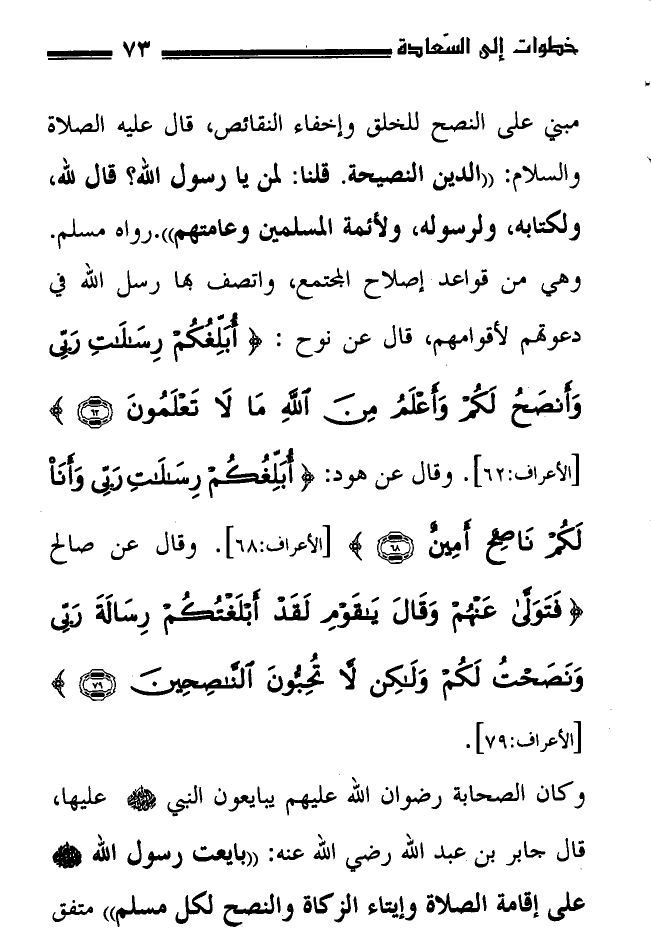 خطوات إلى السعادة ٧٣
مبني على النصح للخلق وإخفاء النقائص، قال عليه الصلاة
والسلام: ((الدين النصيحة. قلنا: لمن يا رسول الله؟ قال لله،
ولكتابه، ولرسوله، ولأئمة المسلمين وعامتهم)).رواه مسلم.
وهي من قواعد إصلاح المجتمع، واتصف بها رسل الله في
دعوتهم لأقوامهم، قال عن نوح : ﴿ أُبَلِّغُكُمْ رِسَٰلَٰتِ رَبِّى
وَأَنصَحُ لَكُمْ وَأَعْلَمُ مِنَ ٱللَّهِ مَا لَا تَعْلَمُونَ ۝٦٢ ﴾
[الأعراف:٦٢]. وقال عن هود: ﴿ أُبَلِّغُكُمْ رِسَٰلَٰتِ رَبِّى وَأَنَا۠
لَكُمْ نَاصِحٌ أَمِينٌ ۝٦٨ ﴾ [الأعراف:٦٨]. وقال عن صالح
﴿ فَتَوَلَّىٰ عَنْهُمْ وَقَالَ يَٰقَوْمِ لَقَدْ أَبْلَغْتُكُمْ رِسَالَةَ رَبِّى
وَنَصَحْتُ لَكُمْ وَلَٰكِن لَّا تُحِبُّونَ ٱلنَّٰصِحِينَ ۝٧٩ ﴾
[الأعراف:٧٩].
وكان الصحابة رضوان الله عليهم يبايعون النبي ﷺ عليها،
قال جابر بن عبد الله رضي الله عنه: ((بايعت رسول الله ﷺ
على إقامة الصلاة وإيتاء الزكاة والنصح لكل مسلم)) متفق